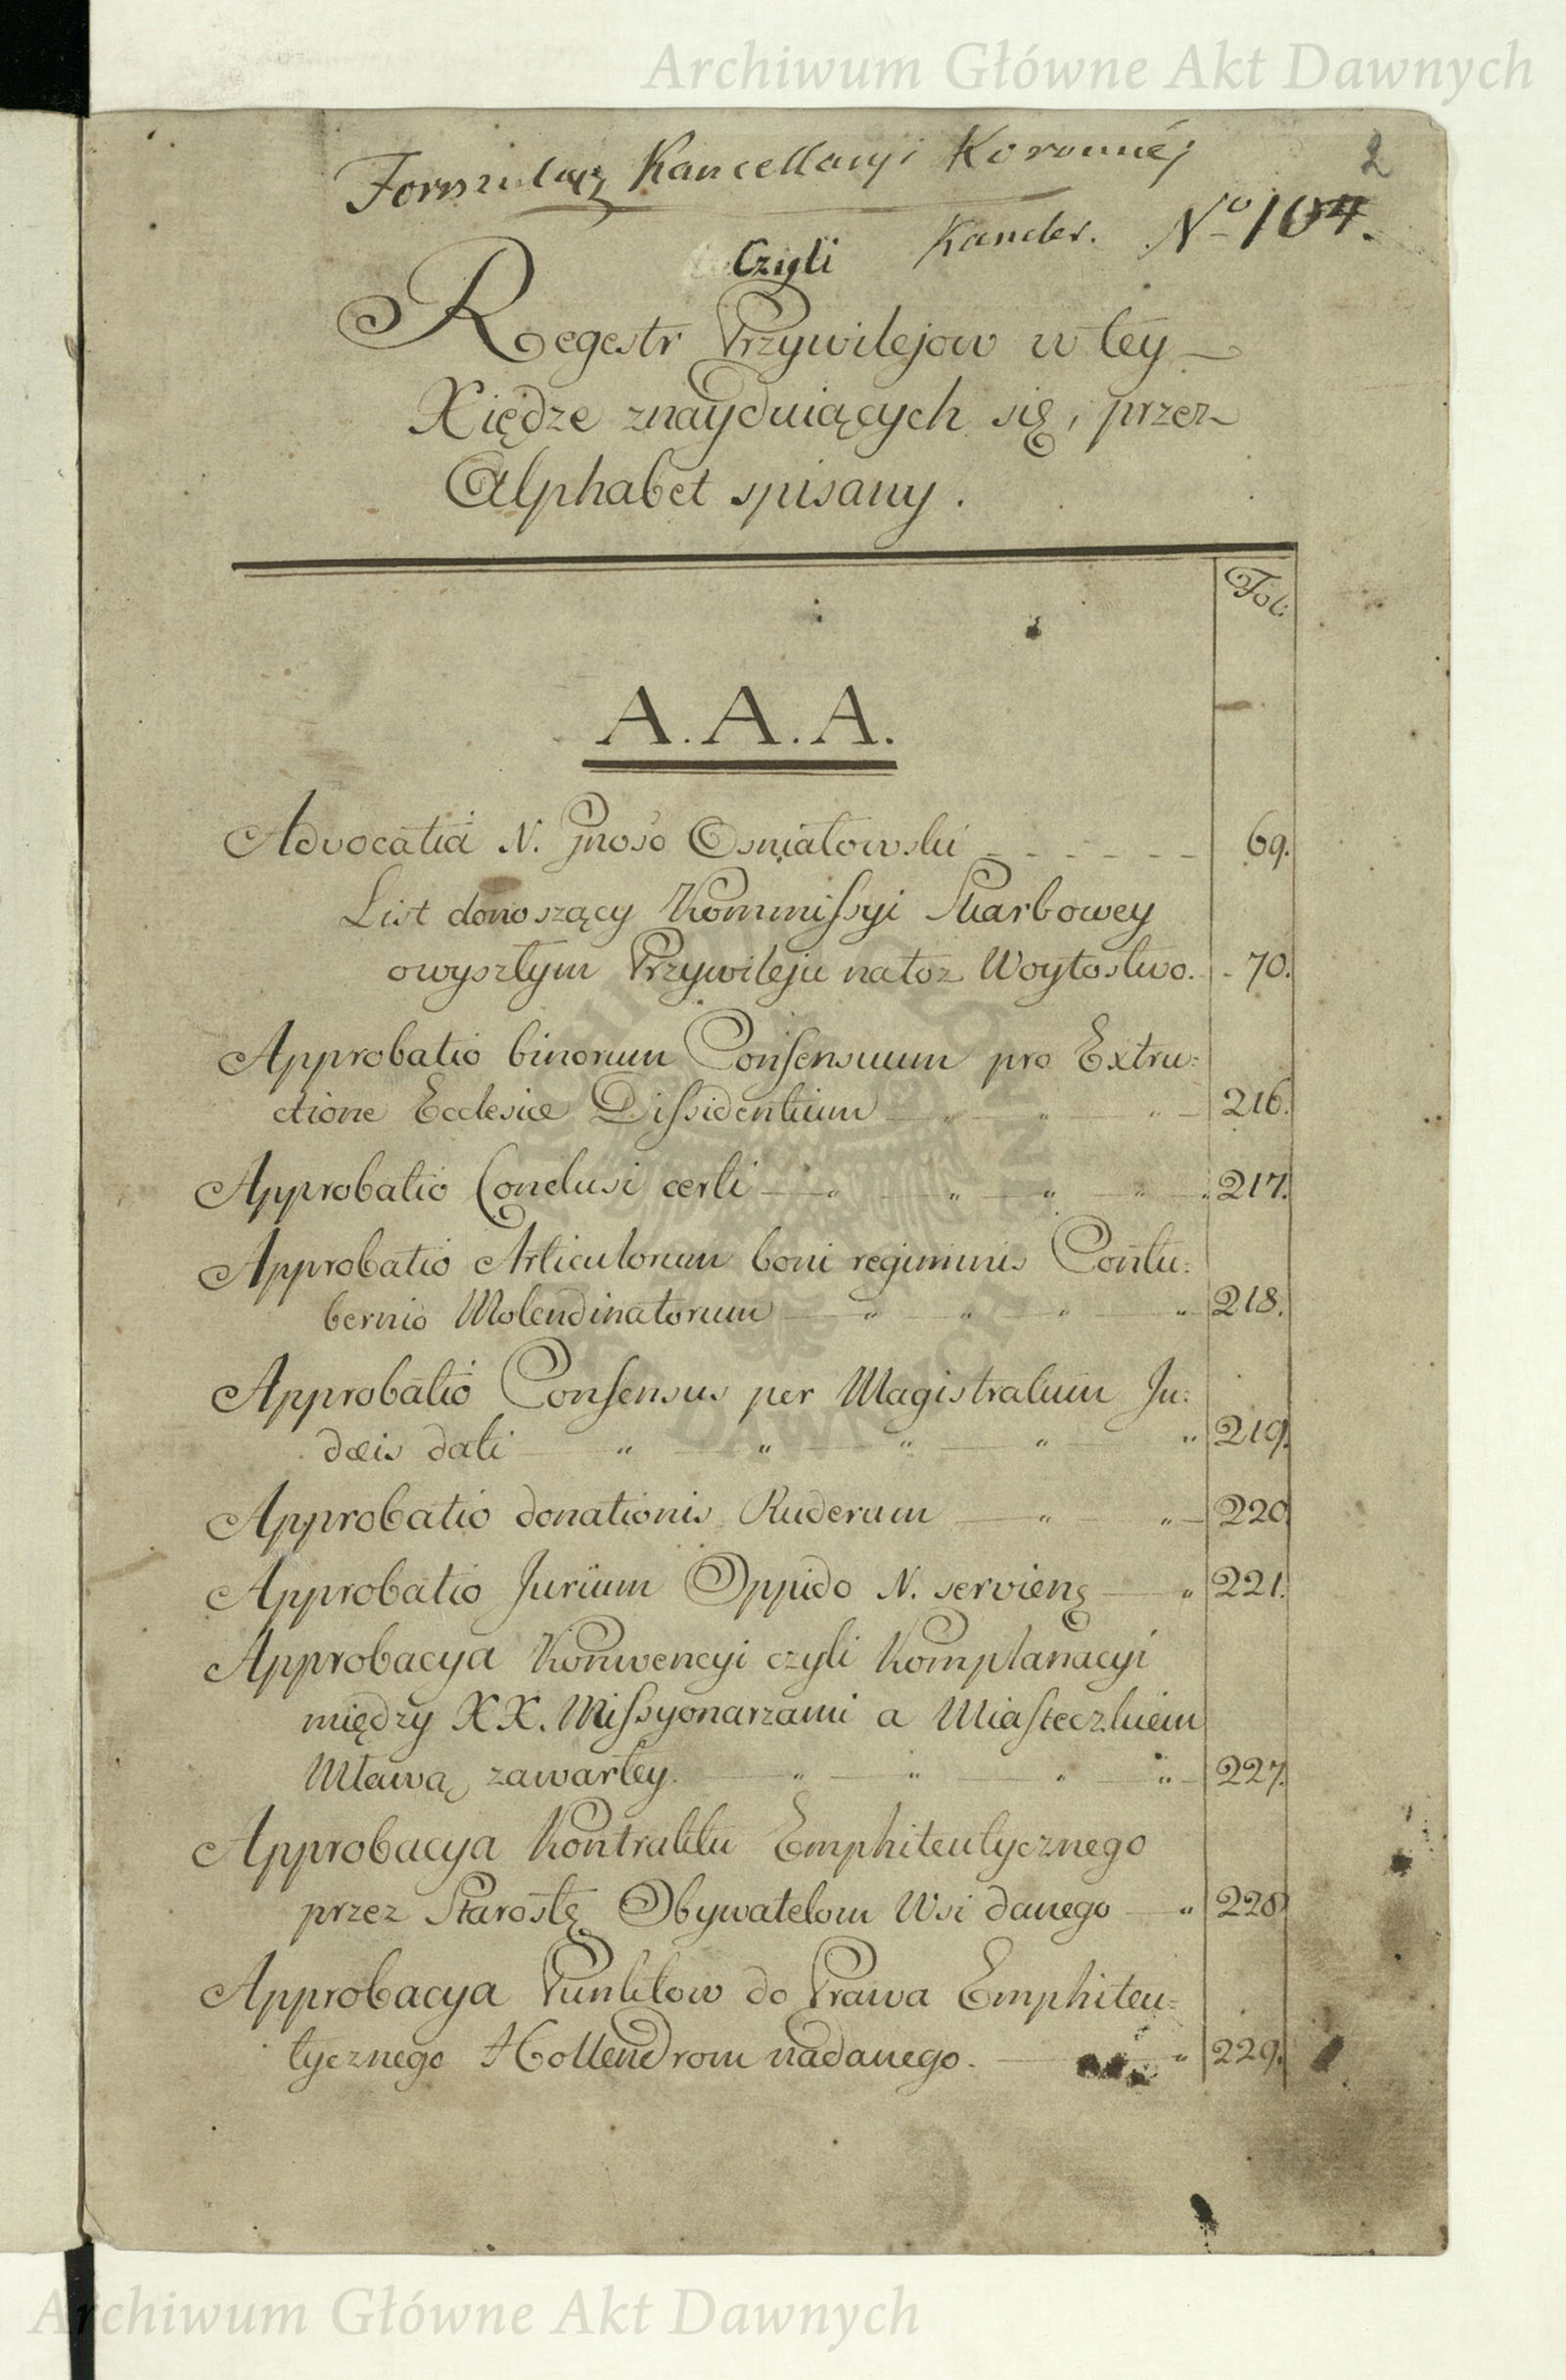 Archiwum Główne Akt Dawnych
2
Formularz Kancellaryi Koronnéj
Kancler. No 104.
Czyli
Regestr Przywilejow w tey
Xiędze znayduiących się, przez
Alphabet spisany.
Fol:
A. A. A.
Advocatia N. Gnoso Osmiałowski 69.
List donoszący Kommissyi Skarbowey
owyszłym Przywileju natoż Woytostwo. 70.
Approbatio binorum Consensuum pro Extru:
ctione Ecclesiæ Dissidentium 216.
Approbatio Conclusi certi 217.
Approbatio Articulorum boni regiminis Contu:
bernio Molendinatorum 218.
Approbatio Consensus per Magistratum Ju:
dæis dati 219.
Approbatio donationis Ruderum 220
Approbatio Jurium Oppido N. servien 221.
Approbacya Konwencyi czyli Komplanacyi
między XX. Missyonarzami a Miasteczkiem
Mławą zawartey. 227.
Approbacya Kontraktu Emphiteutycznego
przez Starostę Obywatelom Wsi danego 228
Approbacya Punktow do Prawa Emphiteu:
tycznego Hollendrom nadanego. 229.
Archiwum Główne Akt Dawnych